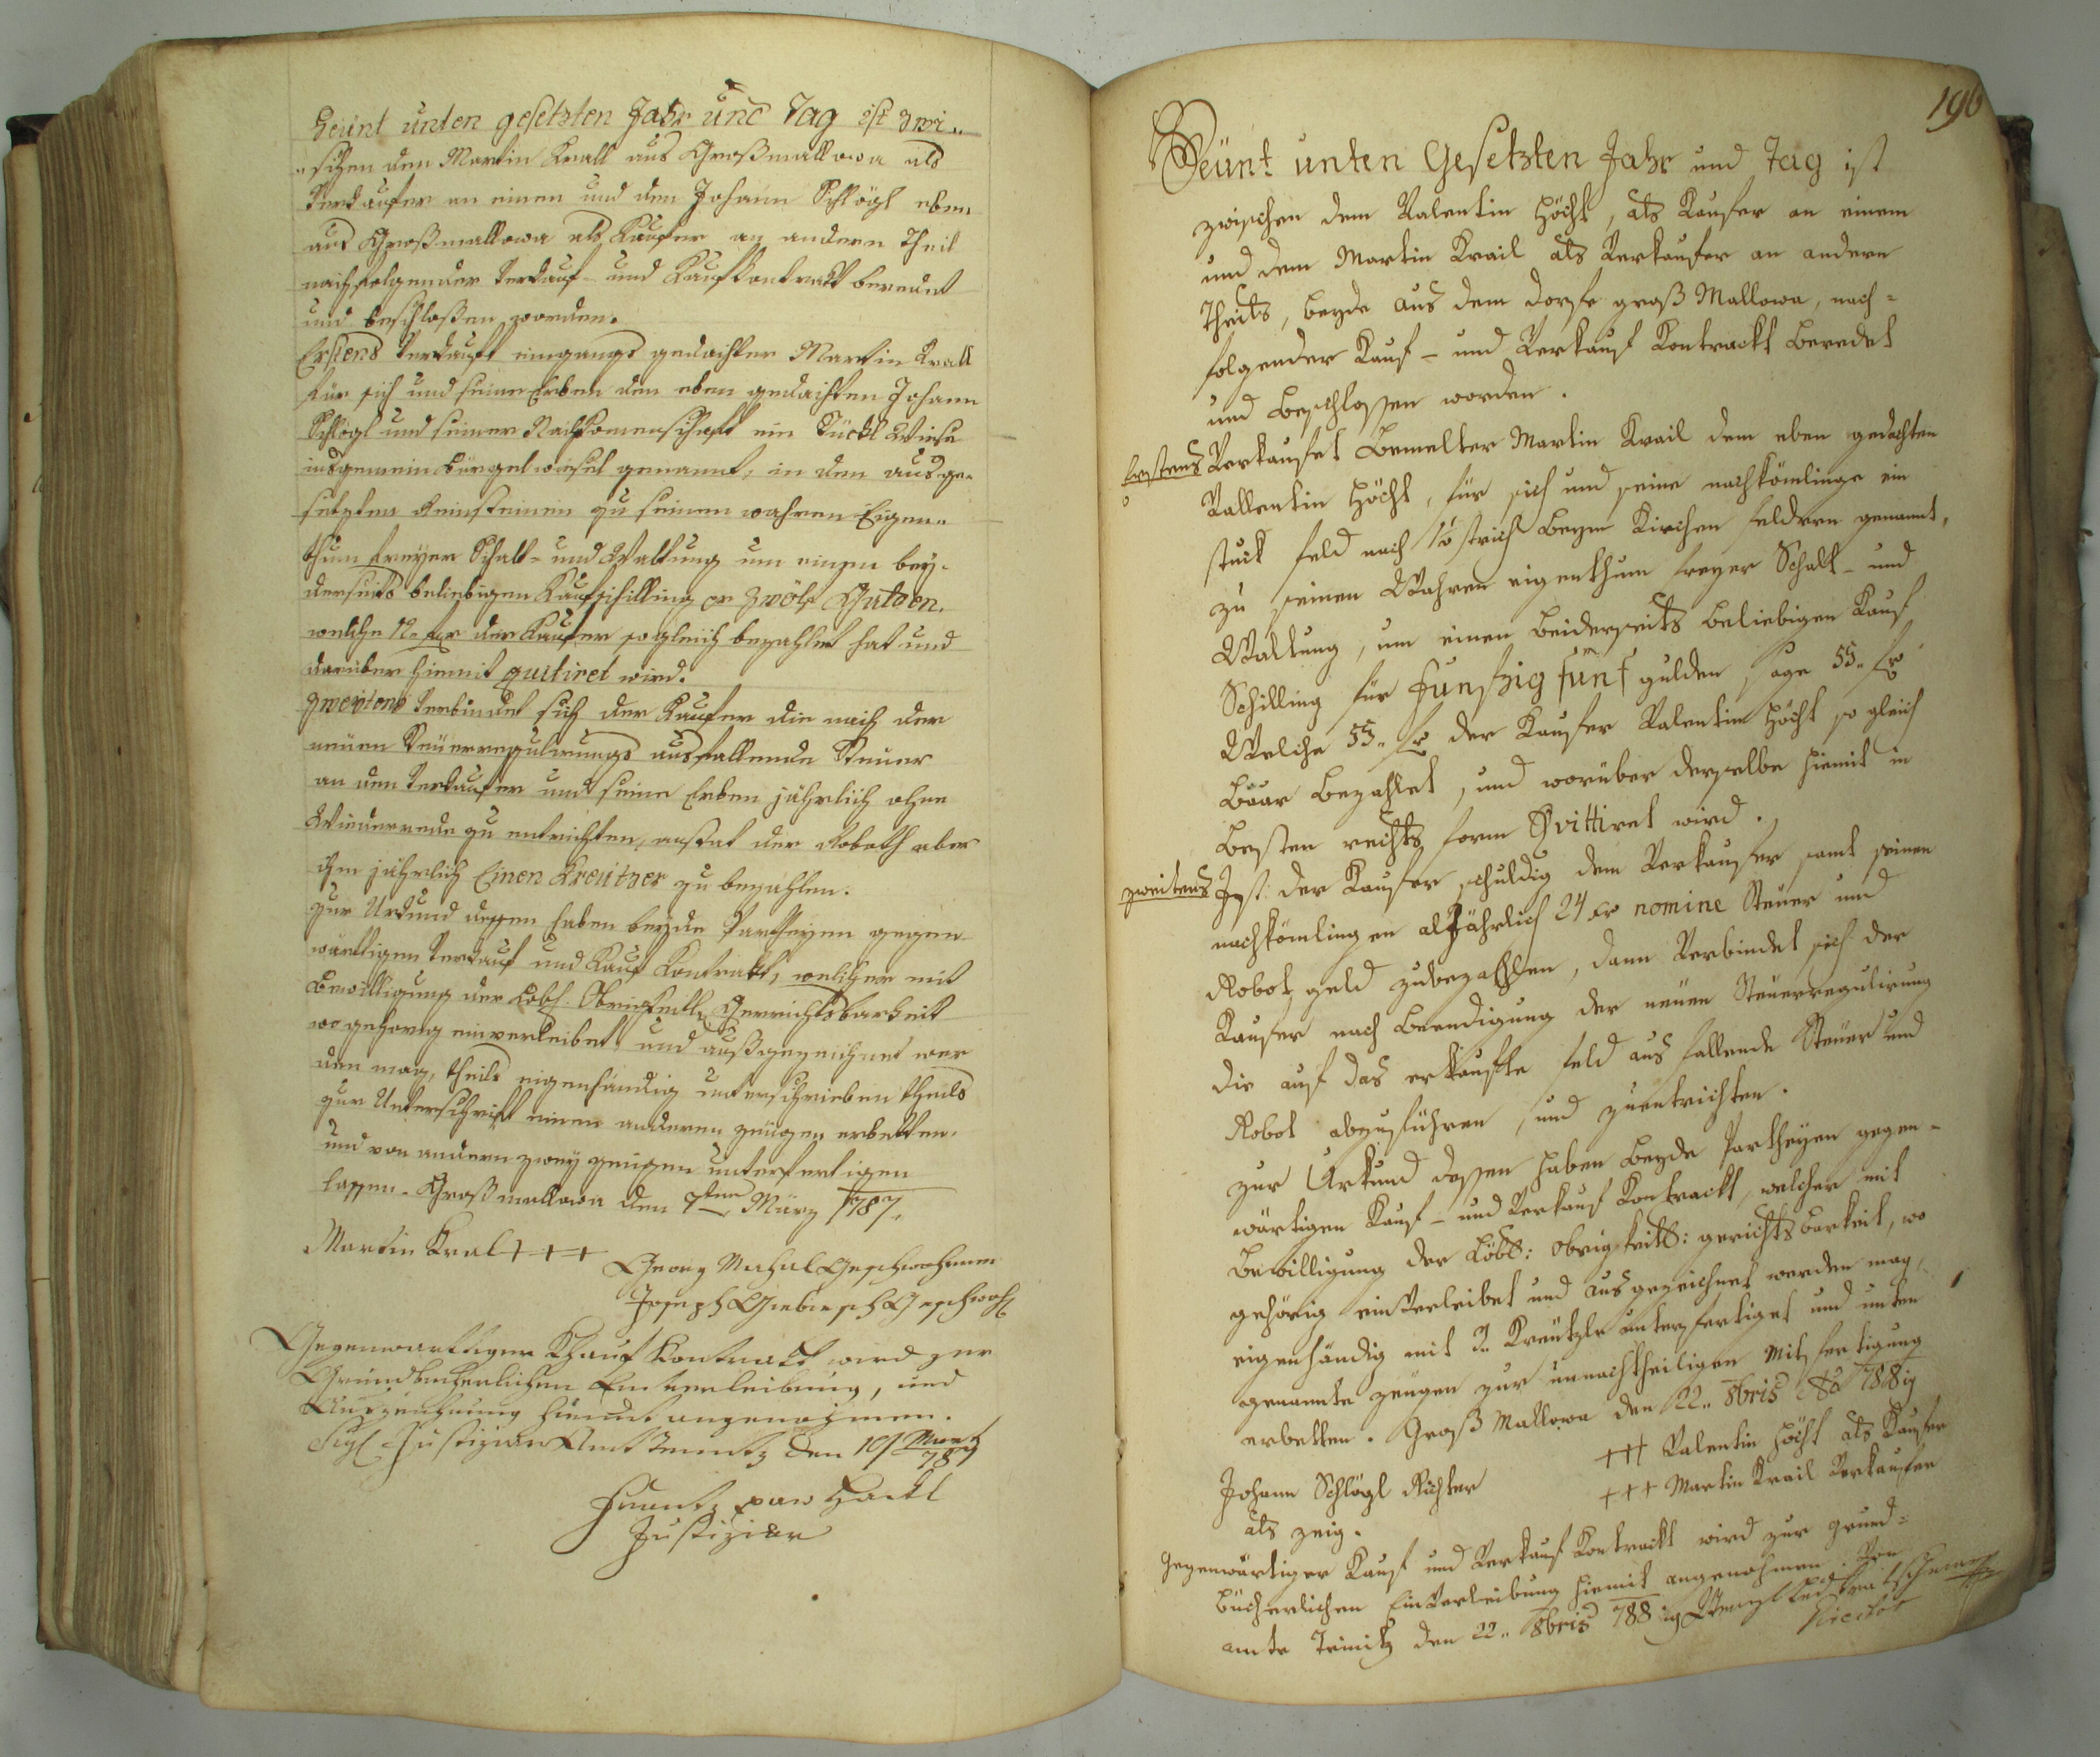 Heünt unten gesetzten Jahr und Tag ist zwi„
„schen den Martin Krall aus Großmallowa als
Verkaufer an einen und den Johann Schlögl eben
aus Großmallowa als Kaufer an andern Theil
nachfolgender Verkauf- und Kaufkontrakt beredet
und beschloßen worden.
Erstens Verkauft eingangs gedachter Martin Krall
für sich und seine Erben den eben gedachten Johann
Schlögl und seiner Nachkomenschaft ein Stückl Wiese
insgemein Bürgelwiesel genannt, in den ausge„
setzten Reinsteinen zu seinen wahren Eigen„
thum freyer Schalt- und Waltung um einen bey„
derseits beliebigen Kaufschilling pr Zwölf Gulden.
welche 12 fr der Kaufer sogleich bezahlet hat und
darüber hiemit quitiret wird.
Zweytens Verbindet sich der Kaufer die nach der
neüen Steüerregulirungs ausfallende Steuer
an den Verkaufer und seine Erben jährlich ohne
Wiederrede zu entrichten, anstat der Roboth aber
ihm jährlich Einen Kreützer zu bezahlen.
Zur Urkund dessen haben beyde Partheyen gegen-
wärttigen Verkauf und Kauf Kontrakt, welcher mit
Bewilligung der Löbl. Obrigkeitl. Gerrichtsbarkeit
wo gehorig einverleibet und außgezeichnet wer
den mag, theils eigenhändig unterschrieben theils
zur Unterschrift einen anderen zeügen erbetten.
und von andern zwey zeügen unterfertigen
lassen. Großmallowa den 7ten März 1787.
Martin Kral +++
Georg Machal Geschwohrner
Joseph Giebisch Geschwoh
Gegenwarttiger Khauf Kontrakt wird zur
Grundbucherlichen Einverleibung, und
Auszeichnung hiemit angenohmen.
Sigl Justiziär Amt den 19 Martz
787
Frantz Hackl
Justiziär
196
Heünt unten Gesetzten Jahr und Tag ist
zwischen dem Valentin Höcht, als Kaufer an einem
und dem Martin Krail als Verkaufer an andern
Theils, beyde aus dem Dorfe groß Mallowa, nach=
folgender Kauf- und Verkauf Kontrackt beredet
und beschlossen worden.
Erstens Verkaufet Bemelter Martin Krail dem eben gedachten
Vallentin Höcht, für sich und seine nachkömlinge ein
stuck feld nach strich beym Kirchen feldern genannt,
zu seinen Wahren eigenthum freyer Schalt- und
Waltung, um einen beiderseits beliebigen Kauf
Schilling für Funfzig fünf gulden sage 55„ fr
Welche 55„ fr der Kaufer Valentin Höcht so gleich
baar bezahlet, und worüber derselbe hiemit in
Besten rechts form Qvittiret wird.
zweitens Ist: der Kaufer schuldig dem Verkaufer samt seinen
nachkömlingen alljährlich 24 xr nomine Steuer und
Robot geld zubezahlen, dann Verbindet sich der
Kaufer nach beendigung der neüen Steüerregulirung
die auf das erkaufte feld aus fallende Steüer und
Robot abzuführen, und zuentrichten.
zur Urkund dessen haben beyde Partheyen gegen-
wärtigen Kauf- und Verkauf Kontrackt, welcher mit
Bewilligung der Löbl: obrigkeitl: gerichtsbarkeit, wo
gehörig einverleibet und ausgezeichnet werden mag,
eigenhändig mit 3„ Kreützln unterfertiget und unten
genannte zeügen zur unnachtheiligen Mitfertigung
erbetten. Groß Mallowa den 22„ 8bris Ao 788ig
+++ Valentin Höcht als Kaufer
Johann Schlögl Richter +++ Martin Krail Verkaufer
als zeig.
Gegenwärtiger Kauf und Verkauf Kontrackt wird zur grund=
bücherlichen Einverleibung hiemit angenohmen. Von
amte Trinitz den 22„ 8bris 788ig Wenzl